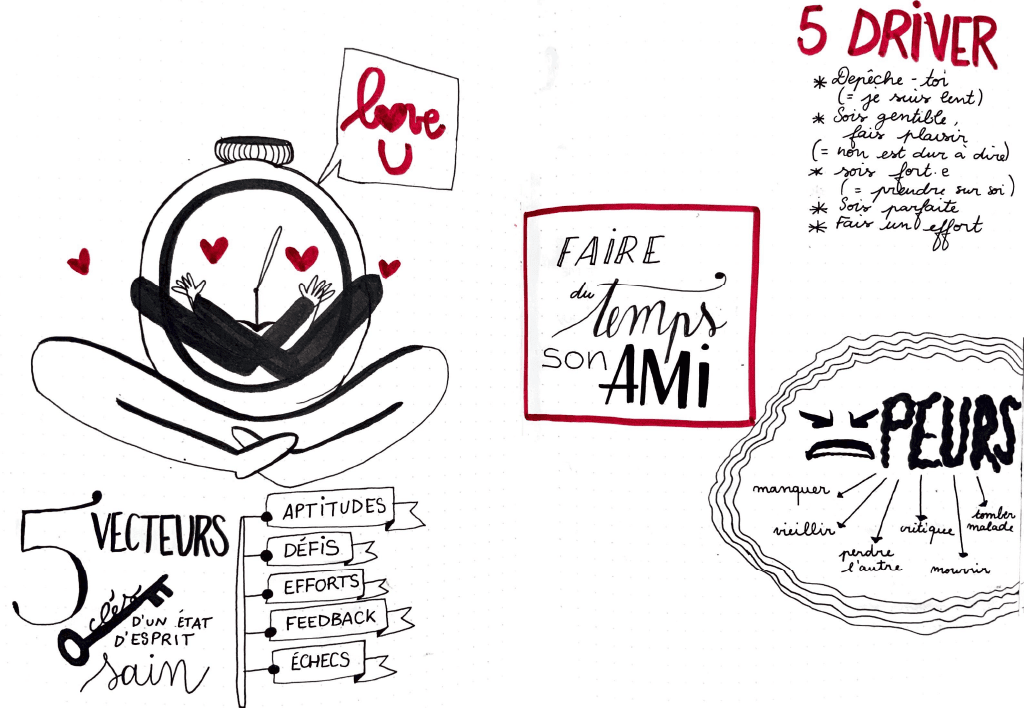 love
U
5 VECTEURS
clés
D'UN ÉTAT
D'ESPRIT
sain
APTITUDES
DÉFIS
EFFORTS
FEEDBACK
ÉCHECS
FAIRE
du temps
son AMi
5 DRIVER
* Depêche-toi
(= je suis lent)
* Sois gentible,
fais plaisir
(= non est dur à dire)
* sois fort.e
(= prendre sur soi)
* Sois parfaite
* Fais un effort
PEURS
manquer
vieillir
perdre
l'autre
critique
mourrir
tomber
malade